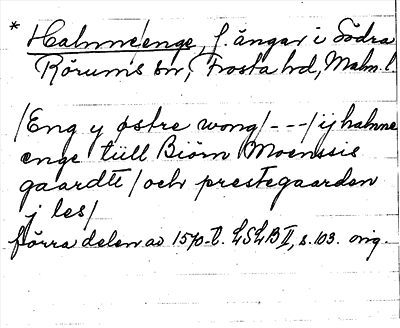 * Halmne/enge, f. ängar i Södra
Rörums sn, Frosta hd, Malm. l.
/Eng y østre wong/---/ij halmne
enge tüll Biørn Moenssis
gaardt/och prestegaarden
j les/
förra delen av 1570-t. LSLB II, s. 103. orig.